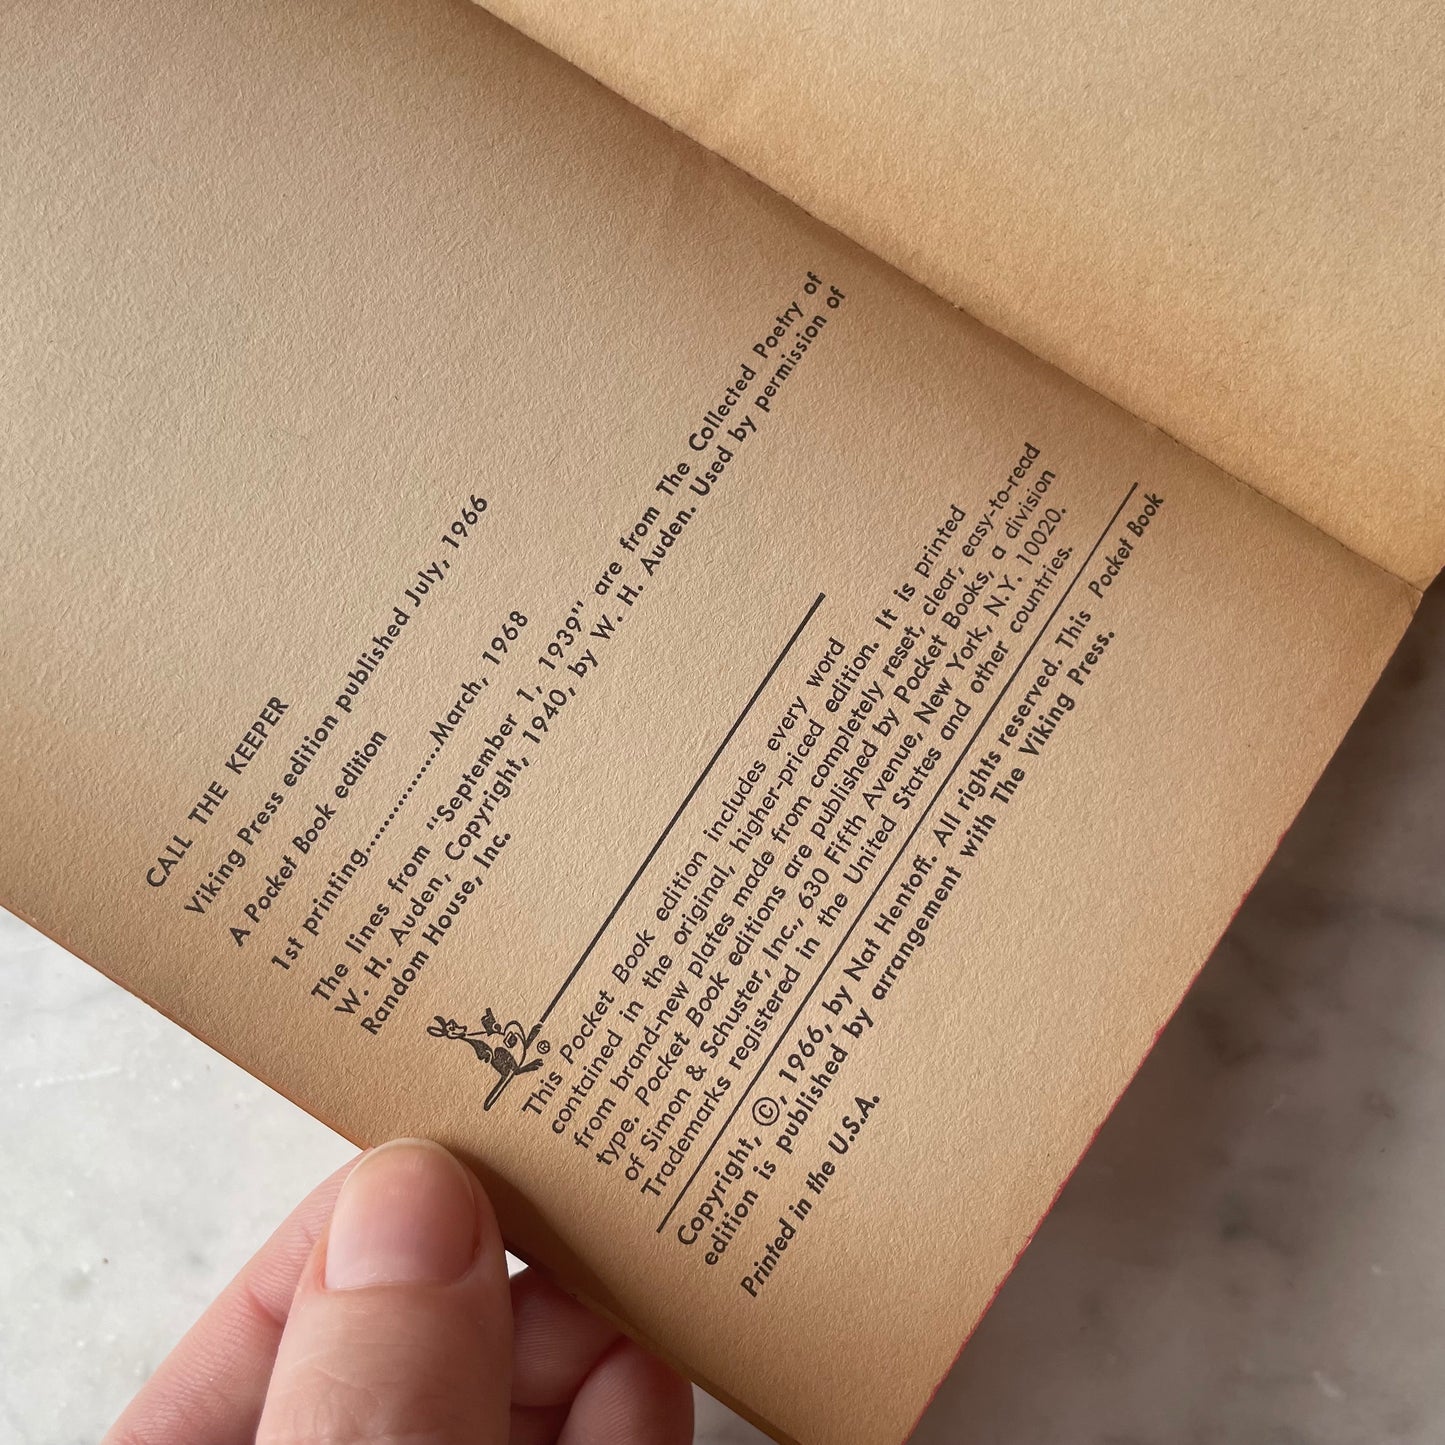 CALL THE KEEPER
Viking Press edition published July, 1966
A Pocket Book edition
1st printing.................March, 1968
The lines from "September 1, 1939" are from The Collected Poetry of
W. H. Auden, Copyright, 1940, by W. H. Auden. Used by permission of
Random House, Inc.
®
This Pocket Book edition includes every word
contained in the original, higher-priced edition. It is printed
from brand-new plates made from completely reset, clear, easy-to-read
type. Pocket Book editions are published by Pocket Books, a division
of Simon & Schuster, Inc., 630 Fifth Avenue, New York, N.Y. 10020.
Trademarks registered in the United States and other countries.
Copyright, ©, 1966, by Nat Hentoff. All rights reserved. This Pocket Book
edition is published by arrangement with The Viking Press.
Printed in the U.S.A.